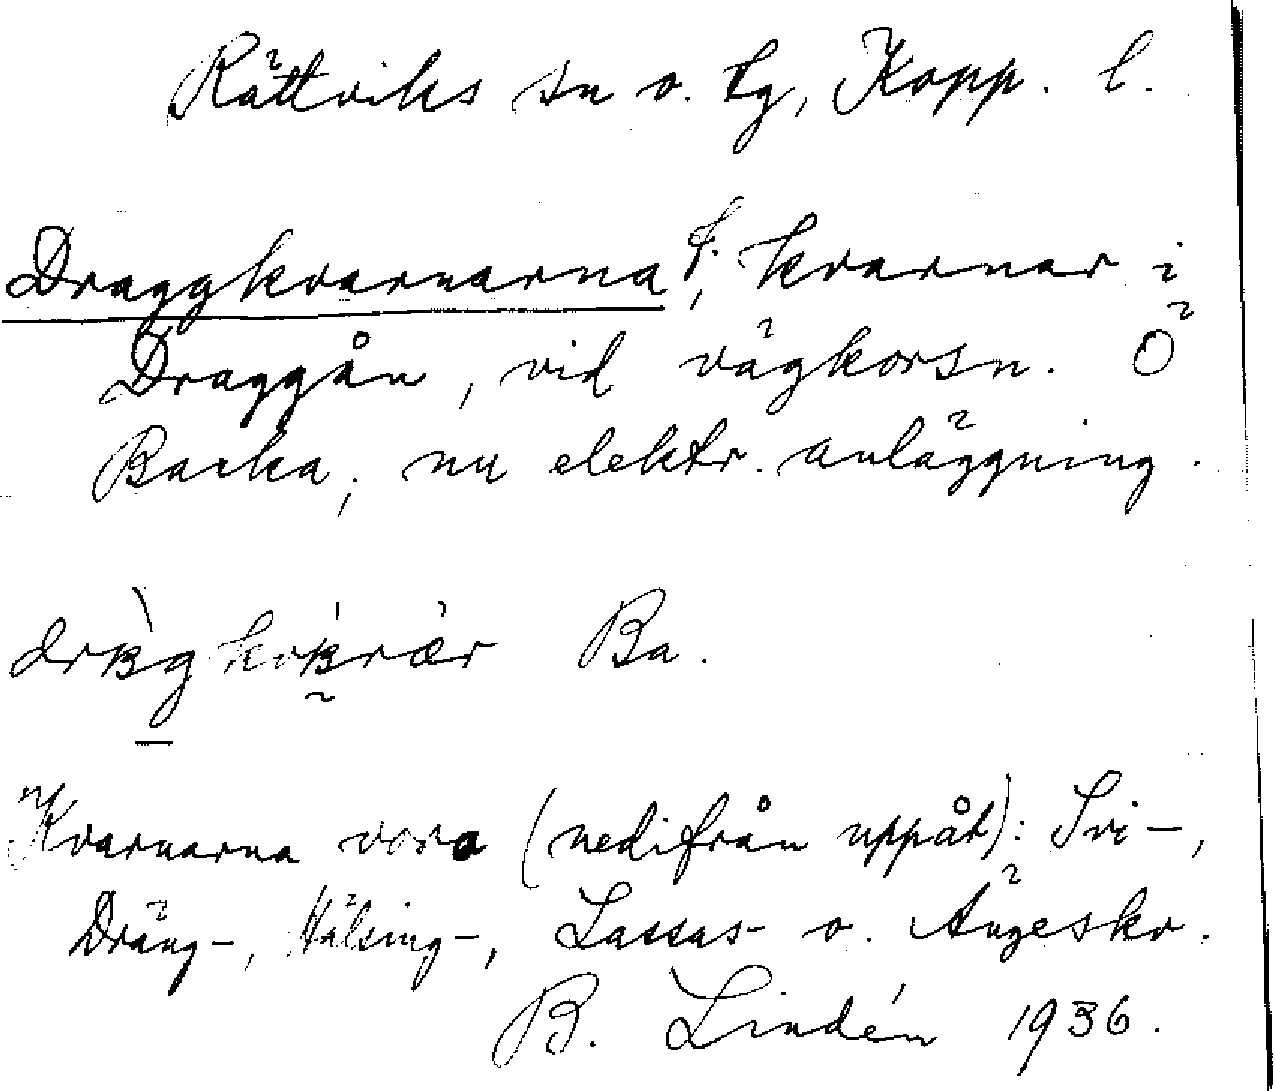 Rättviks sn o. tg, Kopp. l.
Draggkvarnarna †, kvarnar i
Draggån, vid vägkorsn. Ö
Backa, nu elektr. anläggning.
Ba.
Kvarnarna voro (nedifrån uppåt): Svi-,
Dräng-, Hälsing-, Lassas- o. Ängeskv.
B. Lindén 1936.